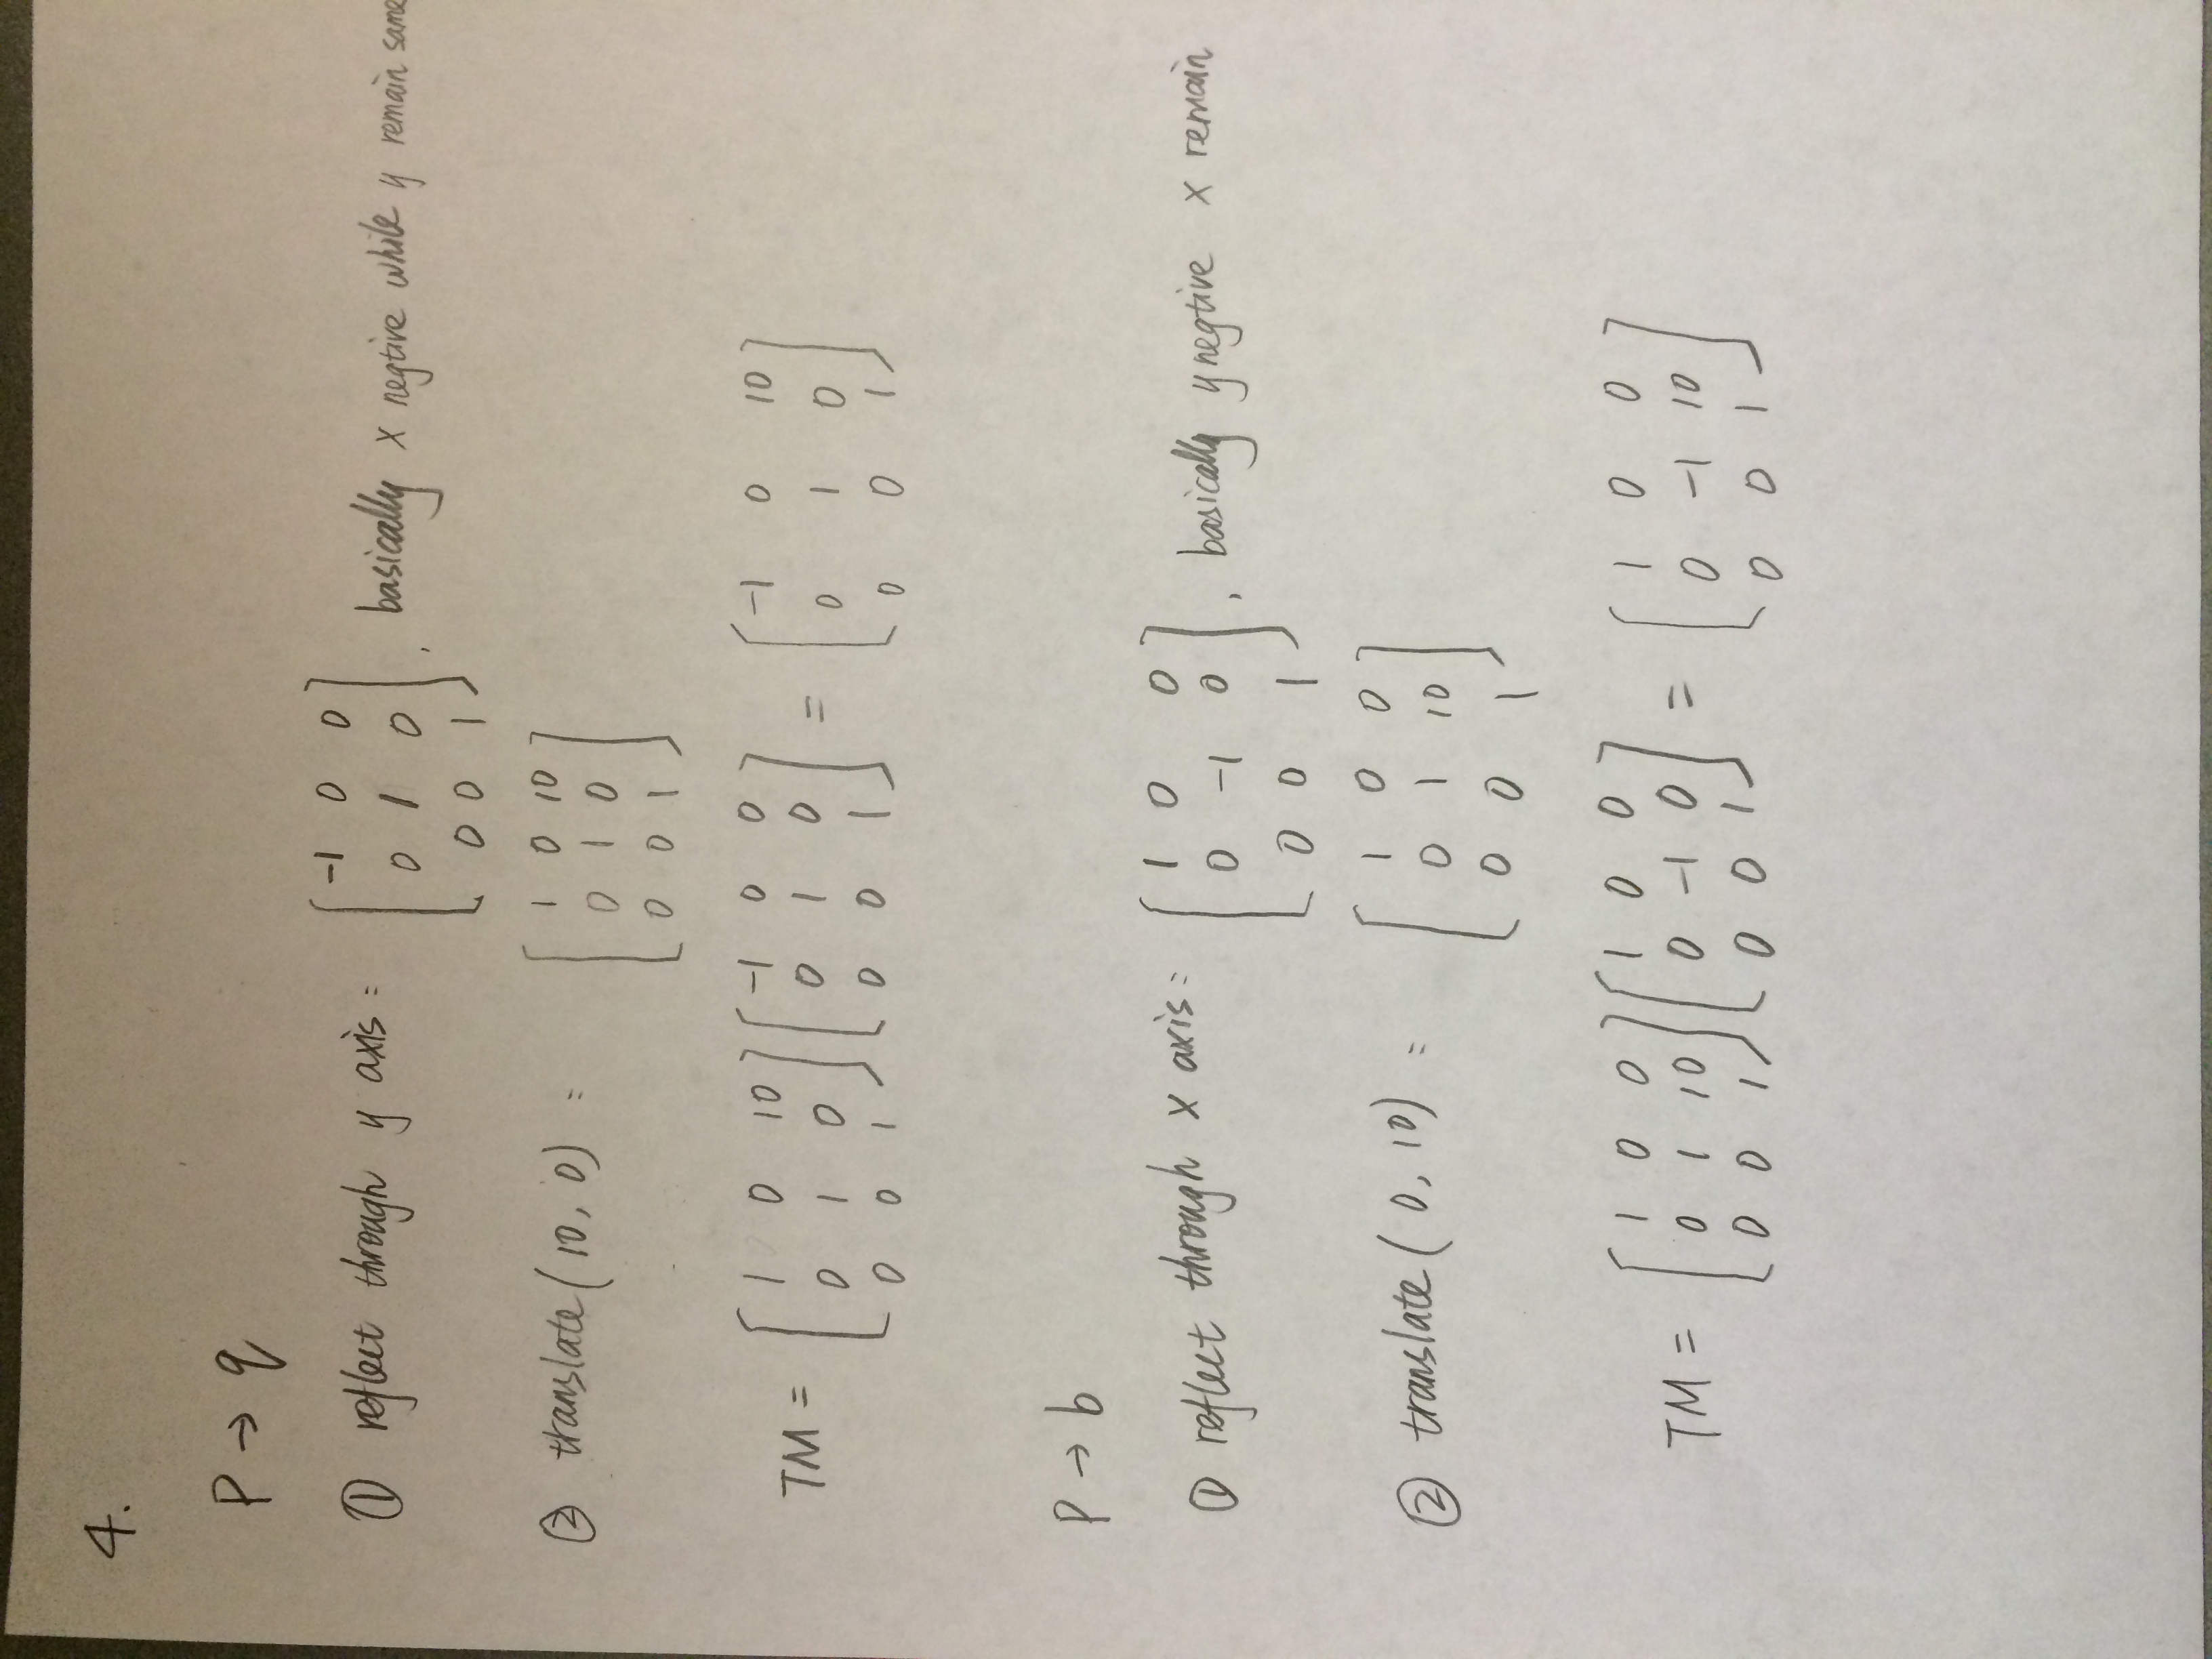 4.
P → q
① reflect through y axis : [ -1 0 0
0 1 0
0 0 1 ] , basically x negtive while y remain same
② translate ( 10, 0 ) : [ 1 0 10
0 1 0
0 0 1 ]
TM = [ 1 0 10
0 1 0
0 0 1 ] [ -1 0 0
0 1 0
0 0 1 ] = [ -1 0 10
0 1 0
0 0 1 ]
P → b
① reflect through x axis : [ 1 0 0
0 -1 0
0 0 1 ] , basically y negtive x remain
② translate ( 0, 10 ) : [ 1 0 0
0 1 10
0 0 1 ]
TM = [ 1 0 0
0 1 10
0 0 1 ] [ 1 0 0
0 -1 0
0 0 1 ] = [ 1 0 0
0 -1 10
0 0 1 ]